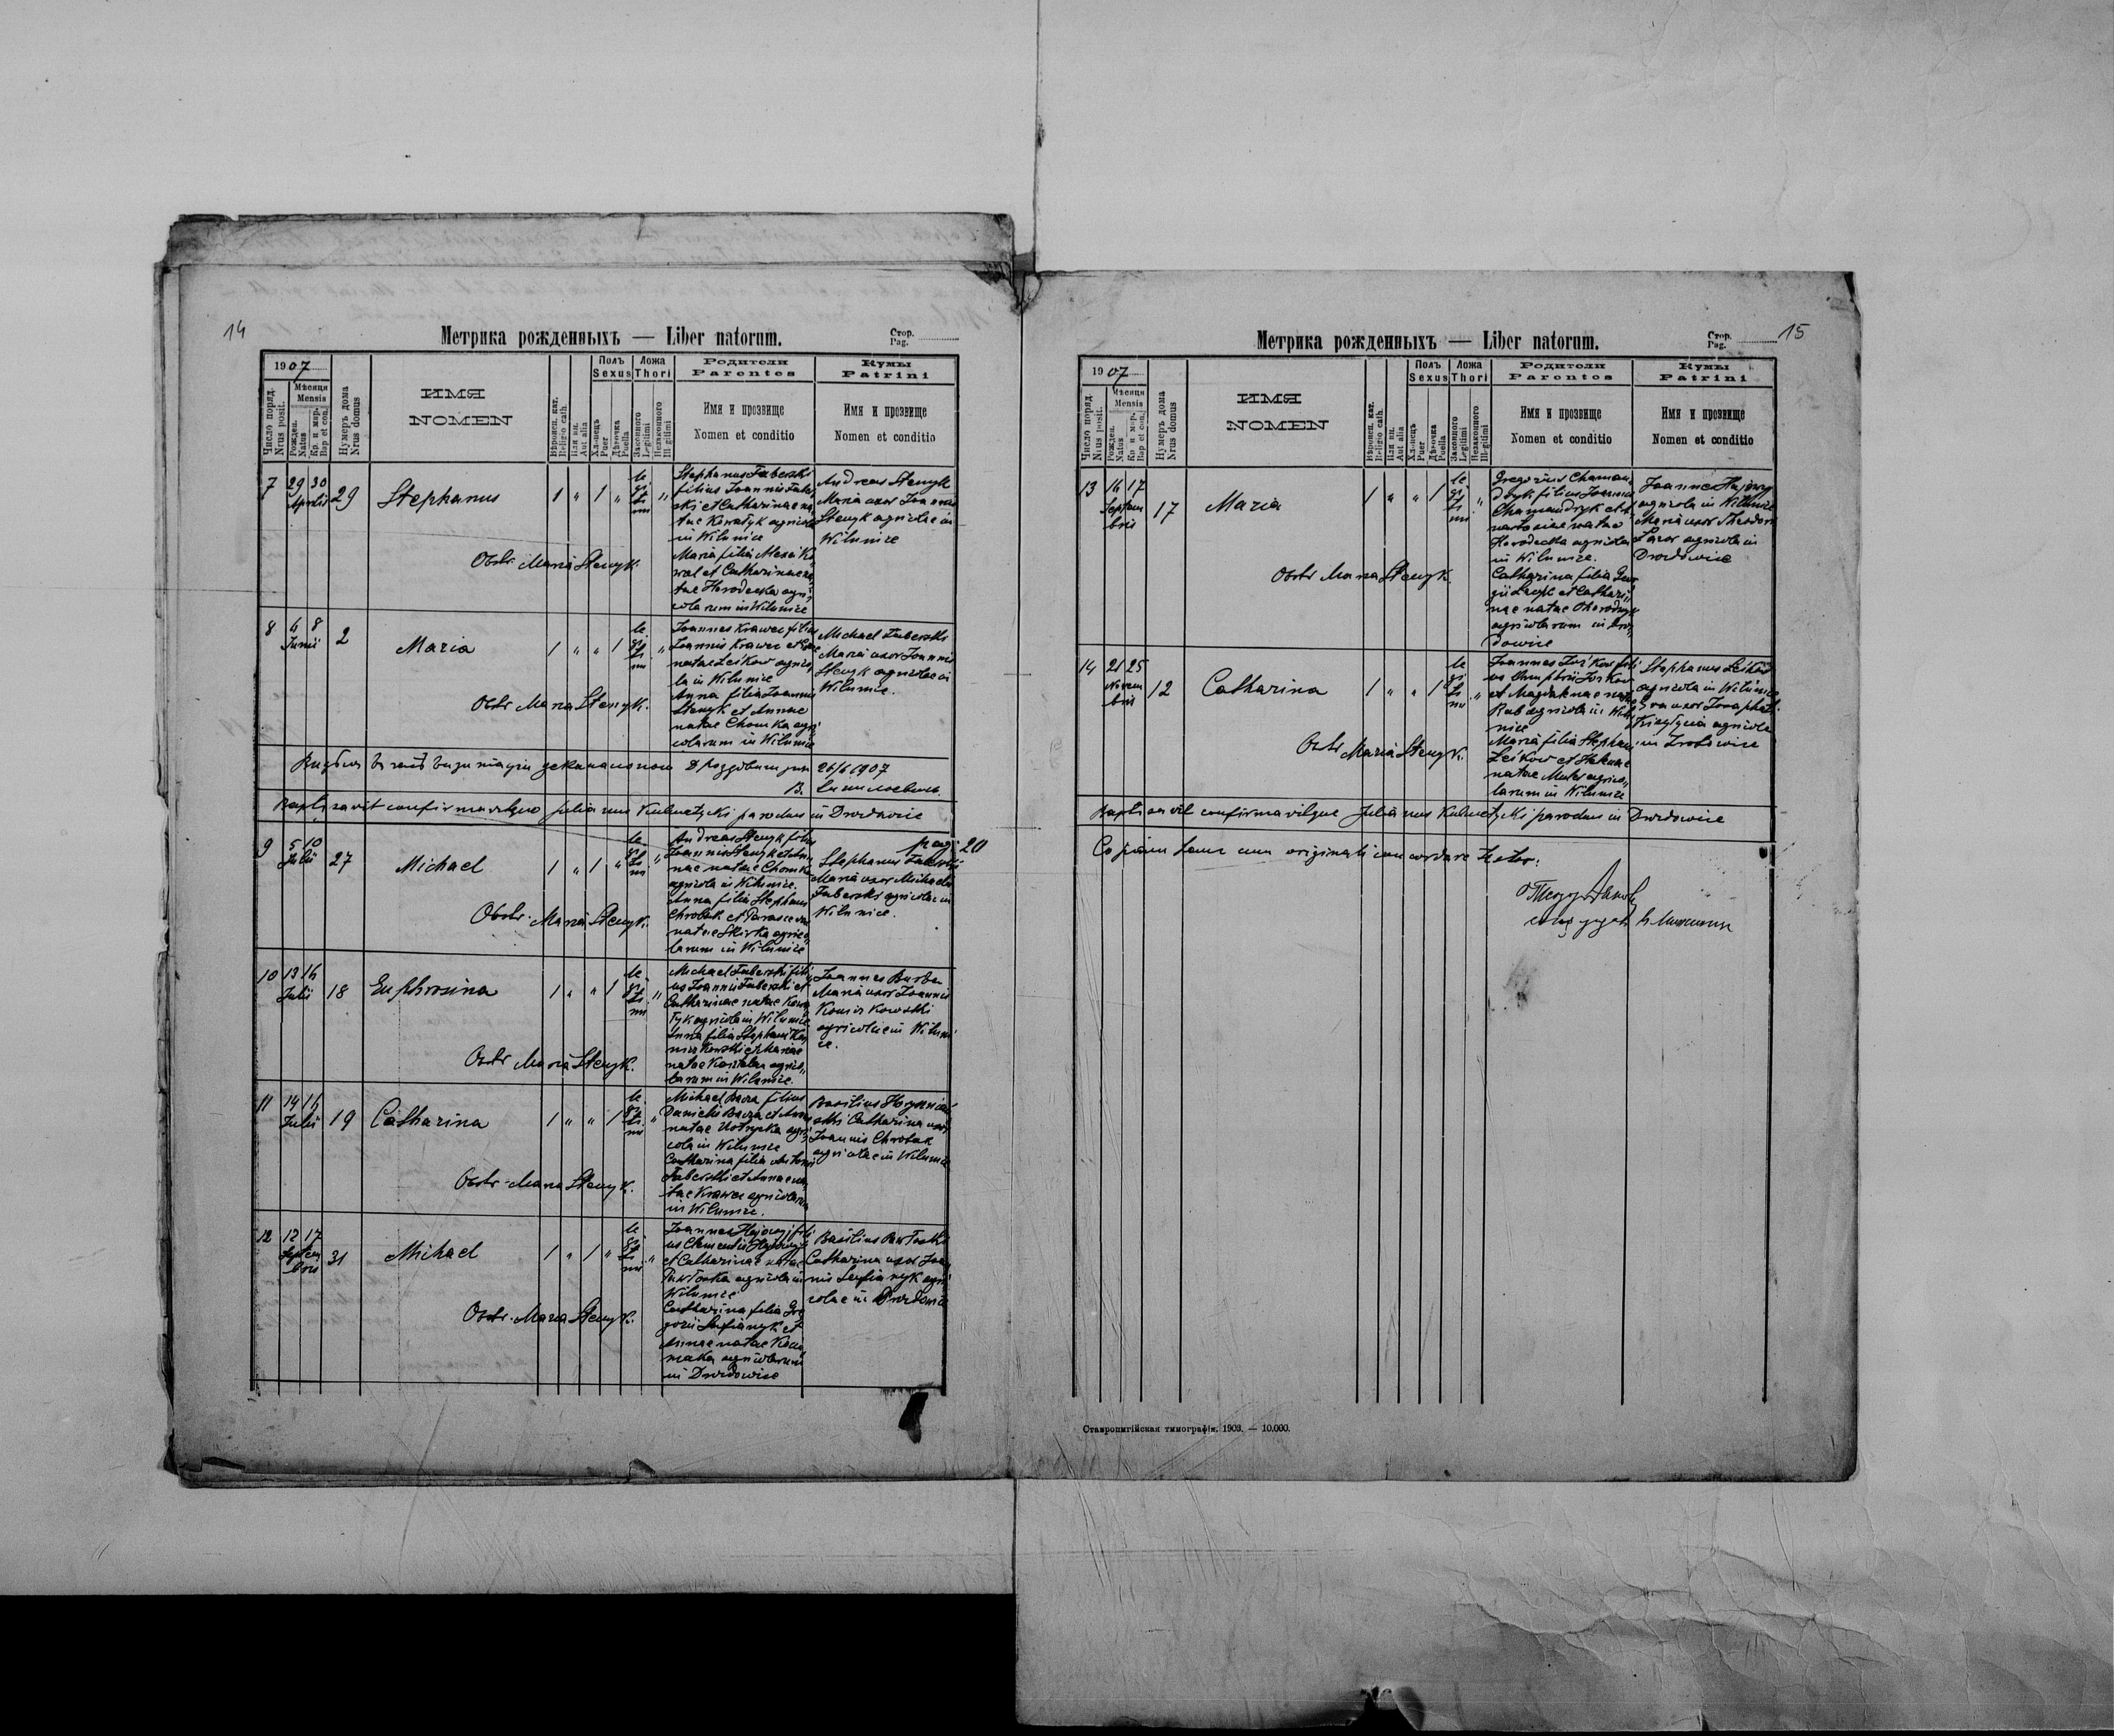 14
Метрика рожденныхъ — Liber natorum.
Стор.
Pag.
1907
Число поряд.
Nrus posit.
Мѣсяця
Mensis
Рожден.
Natus
Кр. и мѵр.
Bap et con.
Нумеръ дома
Nrus domus
ИМЯ
NOMEN
Вѣроисп. кат.
Religio cath.
Или ин.
Aut alia
Полъ
Sexus
Хлопецъ
Puer
Дѣвочка
Puella
Ложа
Thori
Законного
Legitimi
Незаконного
Illegitimi
Родители
Parentes
Имя и прозвище
Nomen et conditio
Кумы
Patrini
Имя и прозвище
Nomen et conditio
7 29 30 Aprilis 29 Stephanus 1 " 1 " legitimi "
Stephanus Faberski
filius Joannis Faber
ski et Catharinae na
tae Kowatyk agricola
in Wilunice
Maria filia Alexii Ko
wal et Catharinae na
tae Horodecka agri
colarum in Wilunice
Andreas Stenyk
Maria uxor Joannis
Stenyk agricolae in
Wilunice
Obstr. Maria Stenyk.
8 6 8 Junii 2 Maria 1 " " 1 legitimi "
Joannes Krawec filius
Joannis Krawec et
natae Leśkow agrico
la in Wilunice
Anna filia Joannis
Stenyk et Annae
natae Chomka agri
colarum in Wilunice
Michael Faberski
Maria uxor Joannis
Stenyk agricolae in
Wilunice.
Obstr Maria Stenyk.
26/6 1907
В.
Baptisavit confirmavitque Julianus Kulmatycki parochus in Drozdowice
pag. 20
9 5 10 Julii 27 Michael 1 " 1 " legitimi "
Andreas Stenyk filius
Joannis Stenyk et An
nae natae Chomka
agricola in Wilunice.
Anna filia Stephani
Chrobak et Parascevae
natae Skirka agrico
larum in Wilunice
Stephanus Faberski
Maria uxor Michaelis
Faberski agricolae in
Wilunice.
Obstr. Maria Stenyk.
10 13 16 Julii 18 Euphrosina 1 " " 1 legitimi "
Michael Faberski fili
us Joannis Faberski et
Catharinae natae Kowa
tyk agricola in Wilunice
Anna filia Stephani Ko
mirkowski et Mariae
natae agrico
larum in Wilunice.
Joannes Burban
Maria uxor Joannis
Komirkowski
agricolae in Wiluni
ce.
Obstr Maria Stenyk.
11 14 16 Julii 19 Catharina 1 " " 1 legitimi "
Michael Baera filius
Danielis Baera et Annae
natae agri
cola in Wilunice
Catharina filia Antonii
Faberski et Annae na
tae Krawec agricolarum
in Wilunice.
Basilius
Catharina uxor
Joannis Chrobak
agricolae in Wilunice
Obstr. Maria Stenyk.
12 12 17 Septembris 31 Michael 1 " 1 " legitimi "
Joannes Hajowyj fili
us Clementis Hajowyj
et Catharinae natae
Pawłoska agricola in
Wilunice
Catharina filia Gre
gorii Senfianyk et
Annae natae
agricolarum
in Drozdowice
Basilius Pawłoski
Catharina uxor Joan
nis Senfianyk agri
colae in Drozdowice
Obstr. Maria Stenyk.
15
Метрика рожденныхъ — Liber natorum.
Стор.
Pag.
1907
Число поряд.
Nrus posit.
Мѣсяця
Mensis
Рожден.
Natus
Кр. и мѵр.
Bap et con.
Нумеръ дома
Nrus domus
ИМЯ
NOMEN
Вѣроисп. кат.
Religio cath.
Или ин.
Aut alia
Полъ
Sexus
Хлопецъ
Puer
Дѣвочка
Puella
Ложа
Thori
Законного
Legitimi
Незаконного
Illegitimi
Родители
Parentes
Имя и прозвище
Nomen et conditio
Кумы
Patrini
Имя и прозвище
Nomen et conditio
13 16 17 Septembris 17 Maria 1 " " 1 legitimi "
Gregorius Chaman
dryk filius Joannis
Chamandryk et A
nastasiae natae
Horodecka agricola
in Wilunice.
Catharina filia Geor
gii et Cathari
nae natae
agricolarum in Droz
dowice
Joannes Hajowyj
agricola in Wilunice
Maria uxor Theodori
Lazor agricola in
Drozdowice
Obstr Maria Stenyk
14 21 25 Novembris 12 Catharina 1 " " 1 legitimi "
Joannes Juśkow fili
us Juśkow
et Magdalenae natae
Bab agricola in Wilu
nice
Maria filia Stephani
Leśkow et Helenae
natae agrico
larum in Wilunice
Stephanus Leśkow
agricola in Wilunice
Eva uxor Josaphat
agricola
in
Obstr Maria Stenyk.
Baptisavit confirmavitque Julianus Kulmatycki parochus in Drozdowice
Copiam hanc cum originali concordare testor:
Ставропигійская типографія. 1903. — 10.000.